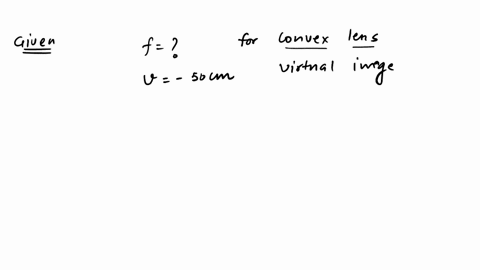 Given f = ? for convex lens
v = - 50 cm virtual image